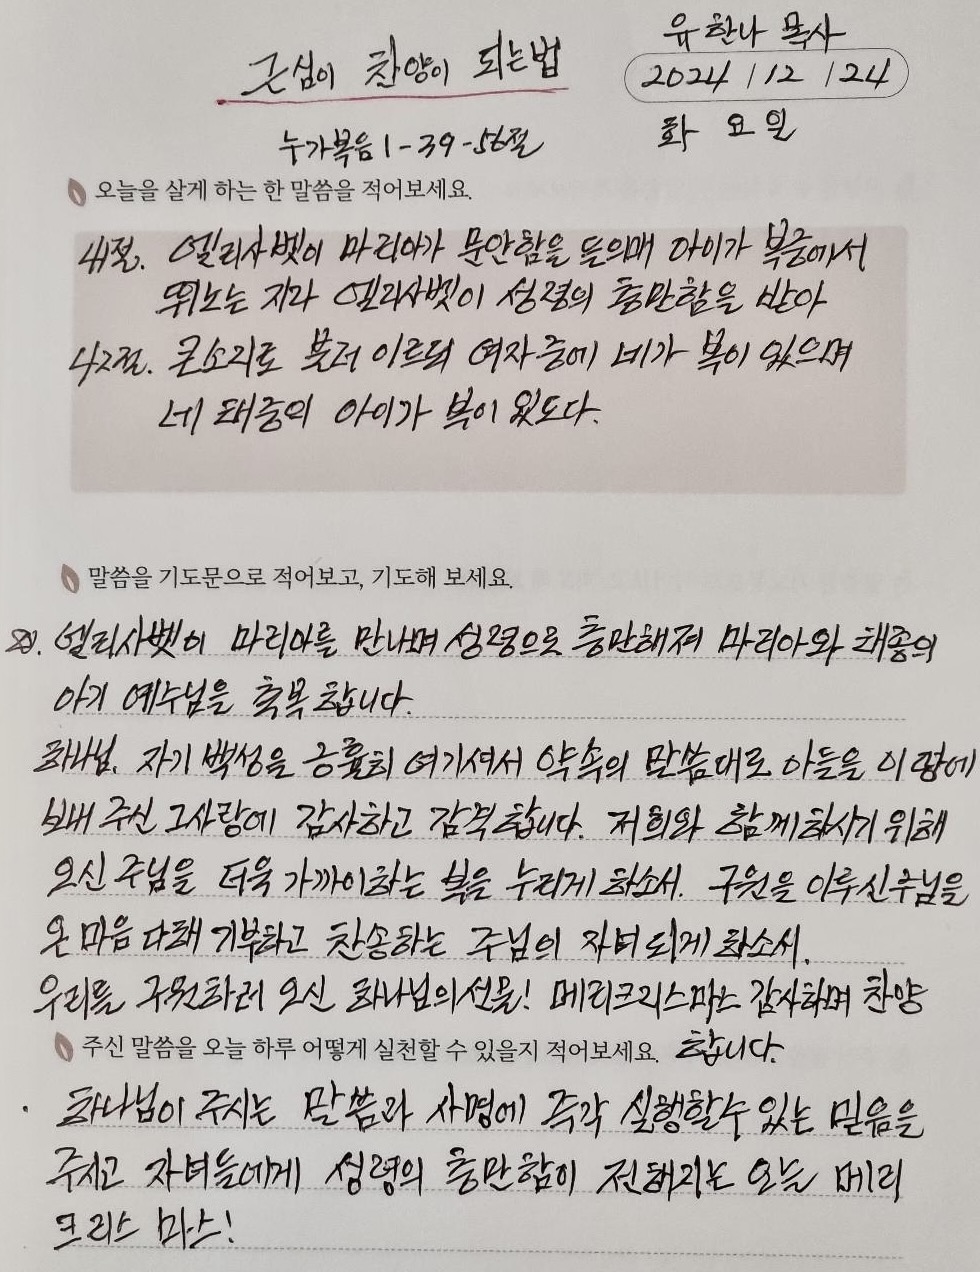 근심이 찬양이 되는법
유한나 목사
2024 / 12 / 24
화 요 일
누가복음 1-39-56절
오늘을 살게 하는 한 말씀을 적어보세요.
41절. 엘리사벳이 마리아가 문안함을 들의매 아이가 복중에서
뛰노는 지라 엘리사벳이 성령의 충만함을 받아
42절. 큰소리로 불러 이르되 여자 중에 네가 복이 있으며
네 태중의 아이가 복이 있도다.
말씀을 기도문으로 적어보고, 기도해 보세요.
엘리사벳이 마리아를 만나며 성령으로 충만해져 마리아와 태중의
아기 예수님을 축복 합니다.
하나님. 자기 백성을 긍휼히 여기셔서 약속의 말씀대로 아들을 이 땅에
보내 주신 그사랑에 감사하고 감격 합니다. 저희와 함께하시기 위해
오신 주님을 더욱 가까이하는 복을 누리게 하소서. 구원을 이루신주님을
온 마음 다해 기뻐하고 찬송하는 주님의 자녀 되게 하소서.
우리를 구원하러 오신 하나님의선물! 메리크리스마스 감사하며 찬양
주신 말씀을 오늘 하루 어떻게 실천할 수 있을지 적어보세요. 합니다.
· 하나님이 주시는 말씀과 사명에 즉각 실행할수 있는 믿음을
주시고 자녀들에게 성령의 충만함이 전해지는 오늘 메리
크리스 마스!